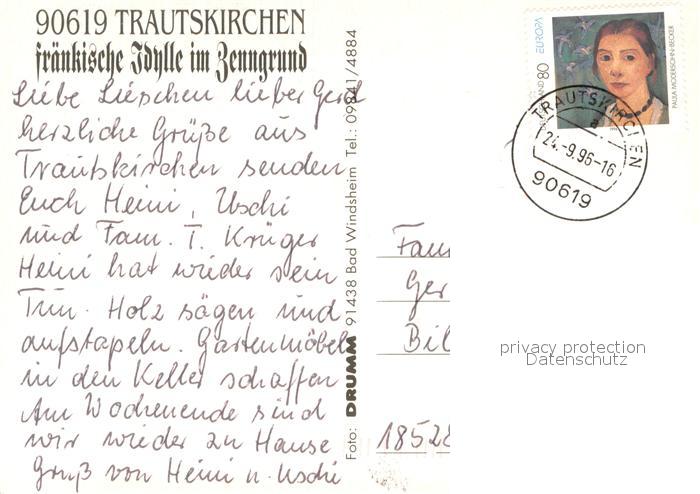 90619 TRAUTSKIRCHEN
fränkische Idylle im Zenngrund
Liebe Lieschen lieber Gerd
herzliche Grüße aus
Trautskirchen senden
Euch Heini, Uschi
und Fam. T. Krüger
Heini hat wieder sein
Tun. Holz sägen und
aufstapeln. Gartenmöbel
in den Keller schaffen
Am Wochenende sind
wir wieder zu Hause
Gruß von Heini u. Uschi
Foto: DRUMM 91438 Bad Windsheim Tel.: 09841/4884
EUROPA
80
PAULA MODERSOHN-BECKER
TRAUTSKIRCHEN
a
24.-9.96-16
90619
Fam
Ger
Bil
18528
privacy protection
Datenschutz